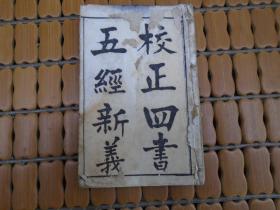 校正四書
五經新義